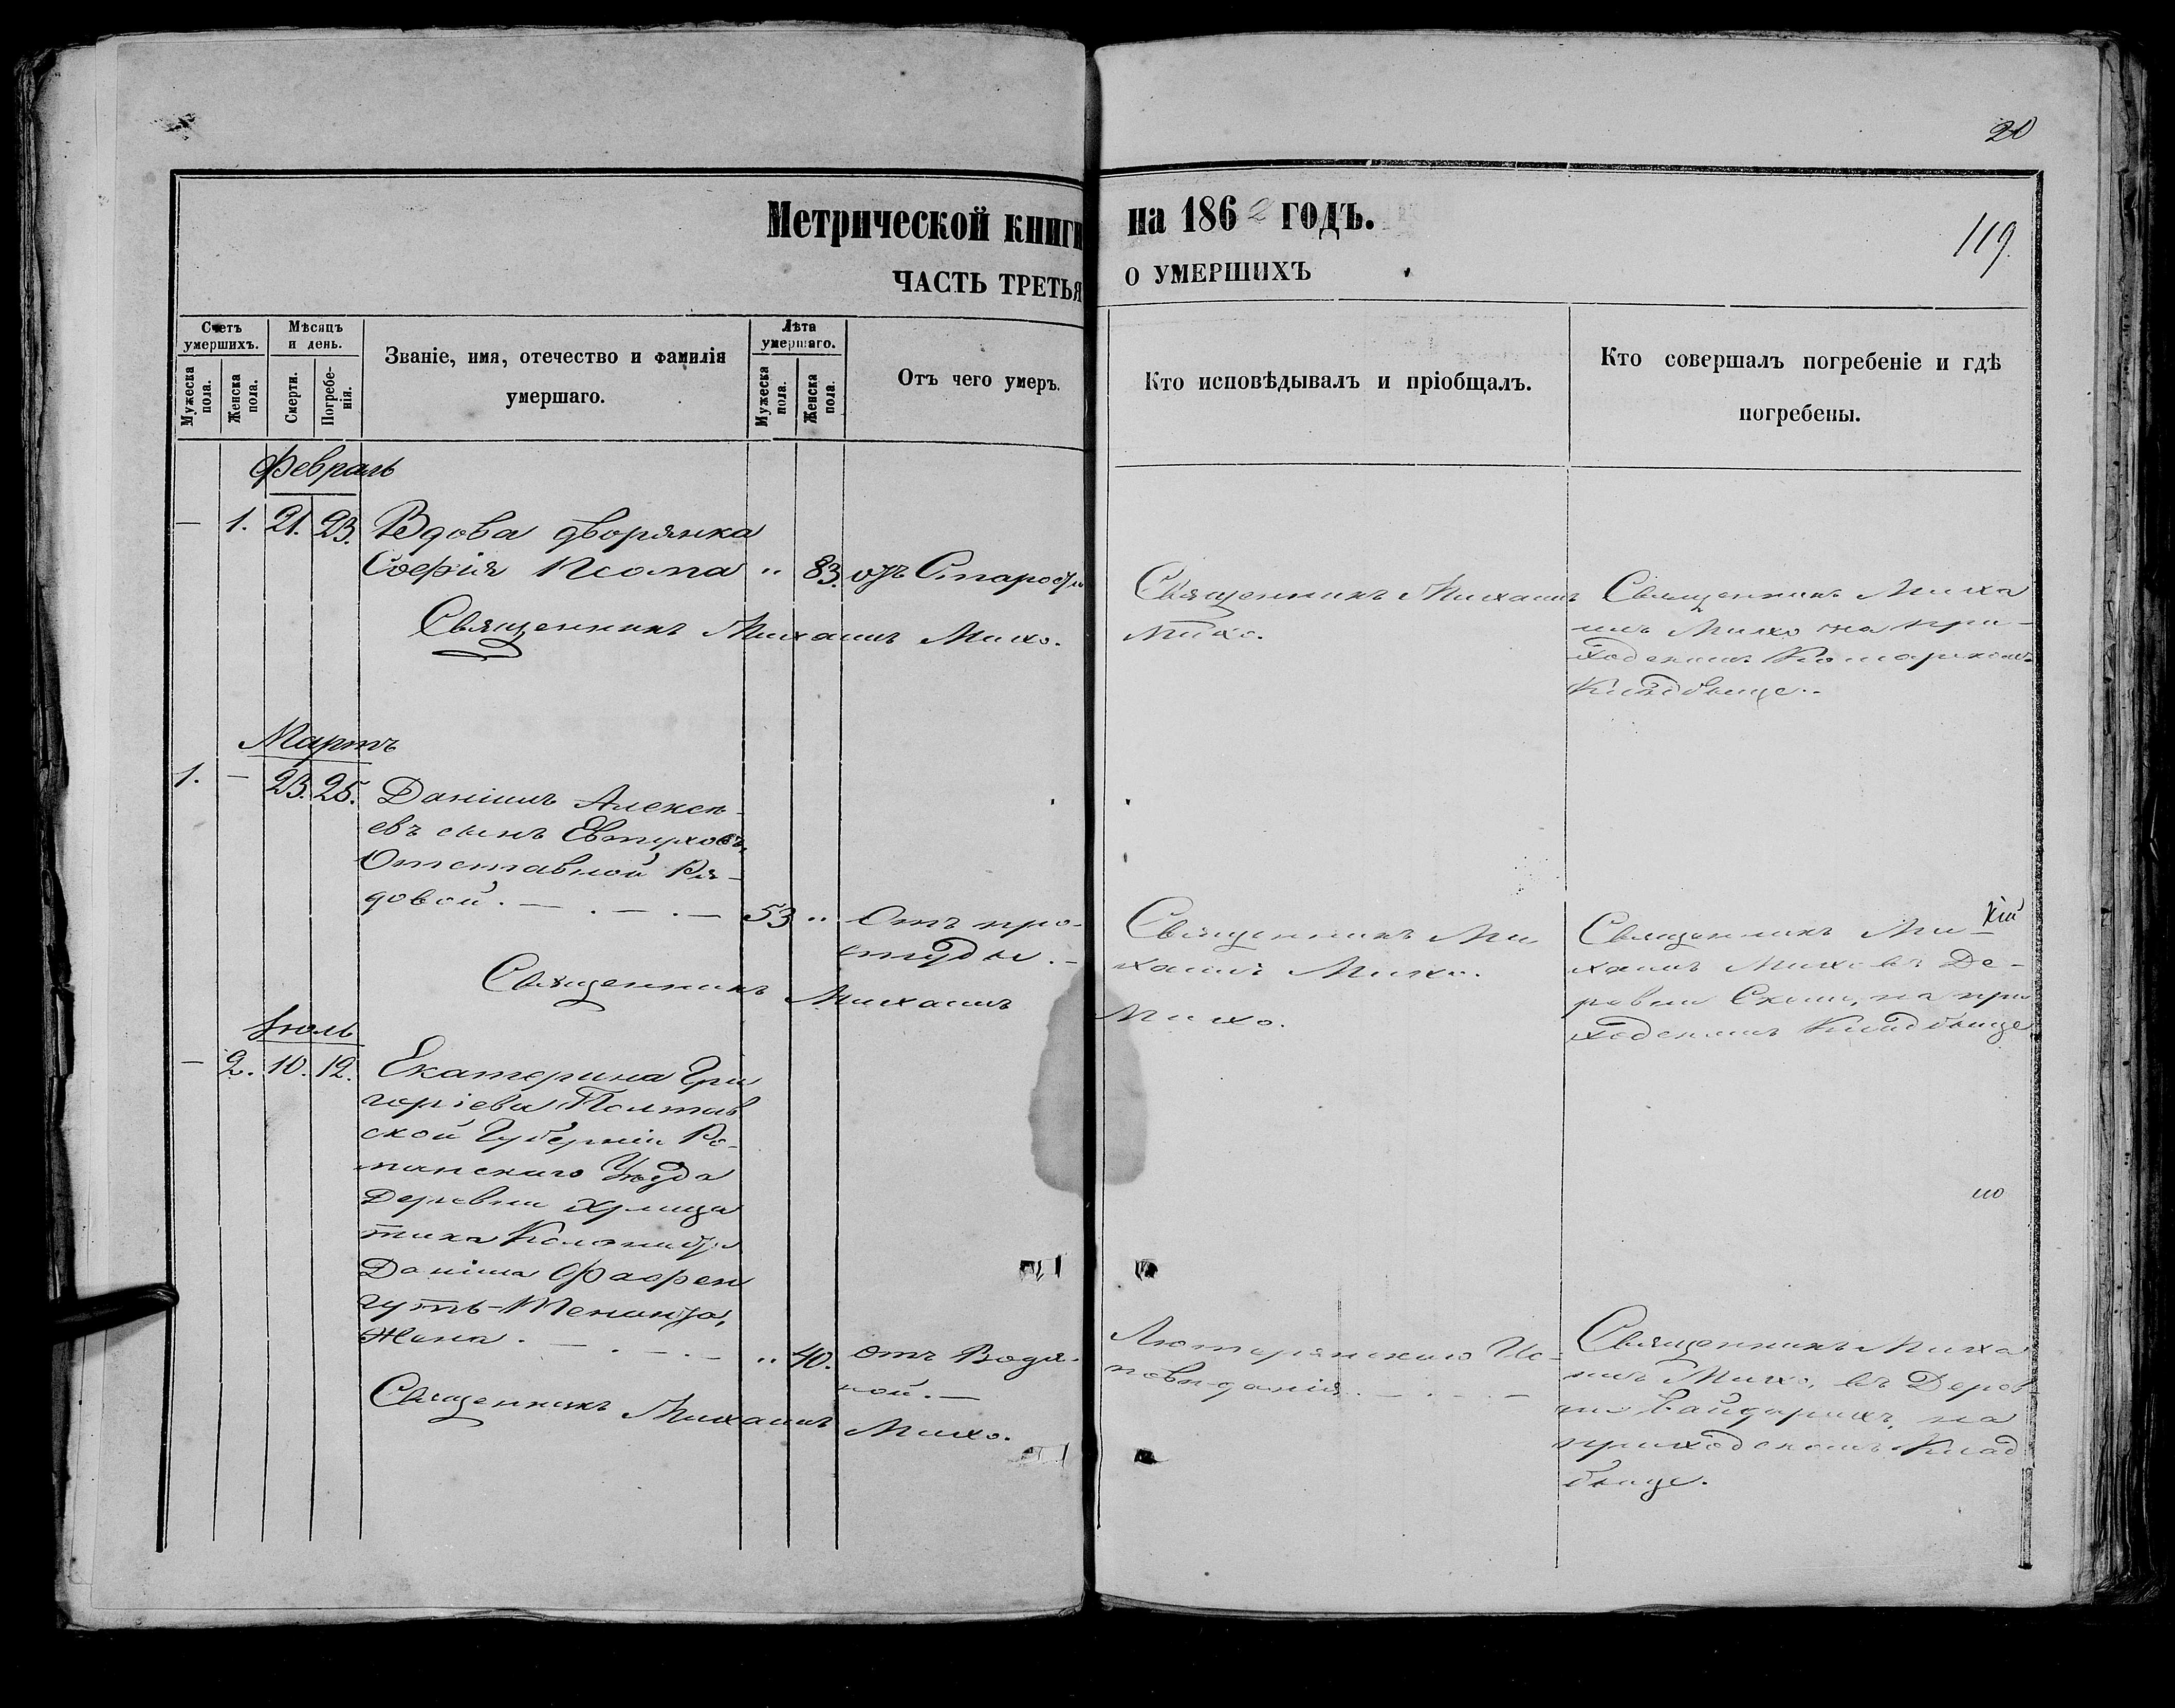 20
Метрической книги на 1862 годъ.
119.
ЧАСТЬ ТРЕТЬЯ о УМЕРШИХЪ
Счетъ умершихъ.
Мужеска пола.
Женска пола.
Мѣсяцъ и день.
Смерти.
Погребенія.
Званіе, имя, отечество и фамилія
умершаго.
Лѣта умершаго.
Мужеска пола.
Женска пола.
Отъ чего умеръ.
Кто исповѣдывалъ и пріобщалъ.
Кто совершалъ погребеніе и гдѣ
погребены.
Февраль
— 1. 21. 23. Вдова дворянка
Софія Псома " 83. отъ Старости
Священникъ Михаилъ Михо.
Священникъ Михаилъ
Михо.
Священникъ Миха
илъ Михо на при-
ходскомъ
Кладбище.
Мартъ
1. — 23. 25. Даніилъ Алексѣ-
евъ сынъ Евтуховъ,
Отставной Ря-
довой. — . — . — 53 " Отъ про-
студы. —
Священникъ Михаилъ Михо.
Священникъ Ми-
хаилъ Михо.
Священникъ Ми-
хаилъ Михо въ Де-
ревни Скели, на при
ходскомъ Кладбище
Іюль
— 2. 10. 12. Екатерина Гри
горіева Полтав
ской Губерніи Ро-
менскаго Уѣзда
Деревни
Колониста
Даніила
Жена. — . — . — " 40. отъ Водя-
ной. —
Священникъ Михаилъ Михо.
Лютеранскаго Ис-
повѣданія. — . — . —
Священникъ Миха
илъ Михо, въ Дерев
ни Байдарахъ, на
приходскомъ Клад
бище.